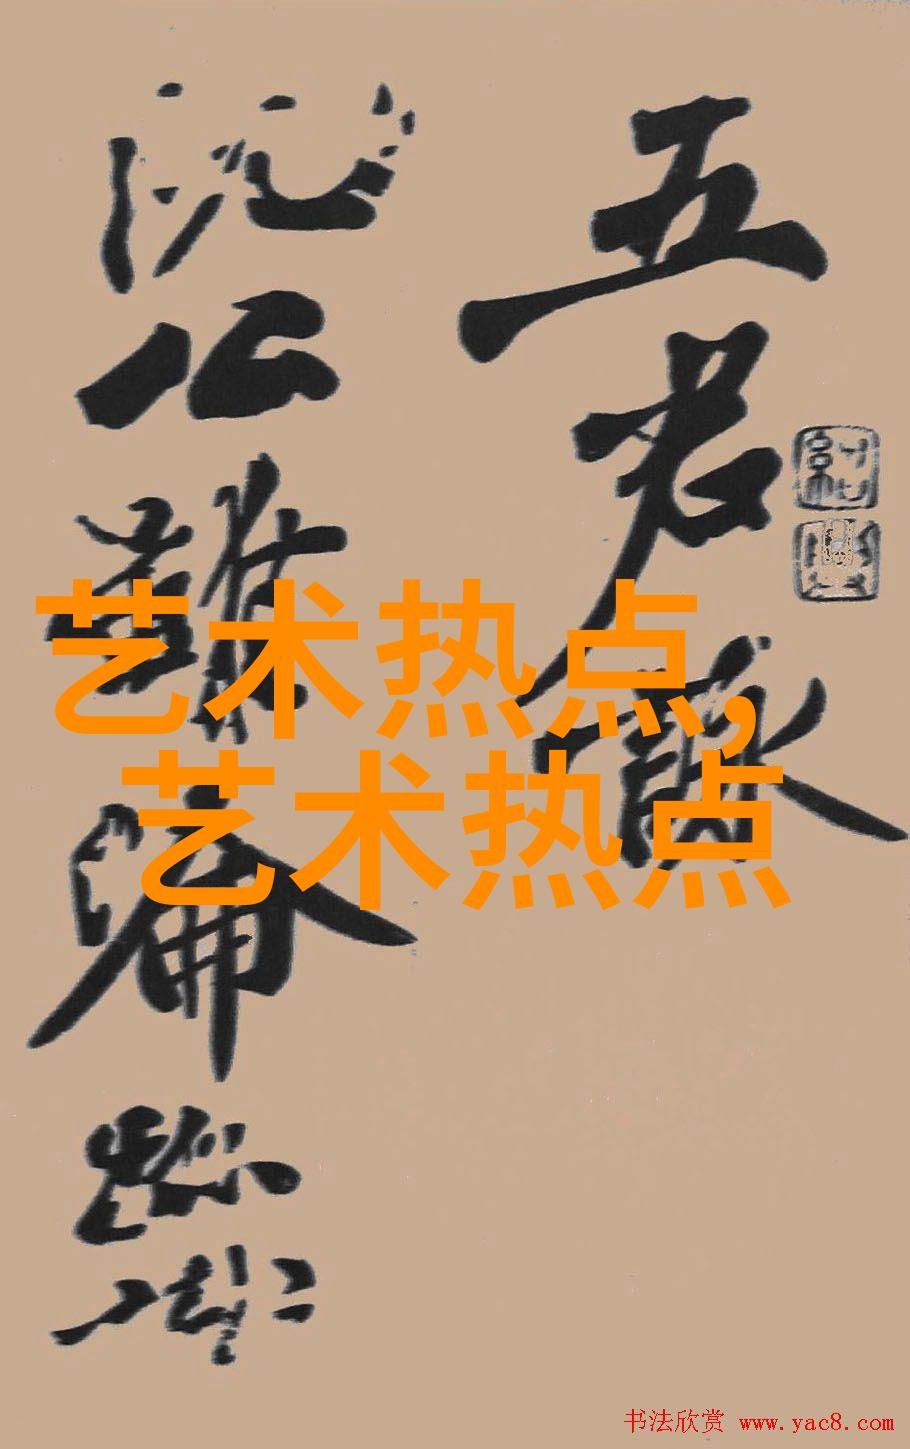 五君詠
阮公雖淪跡
艺术热点,
艺术热点
书法欣赏 www.yac8.com